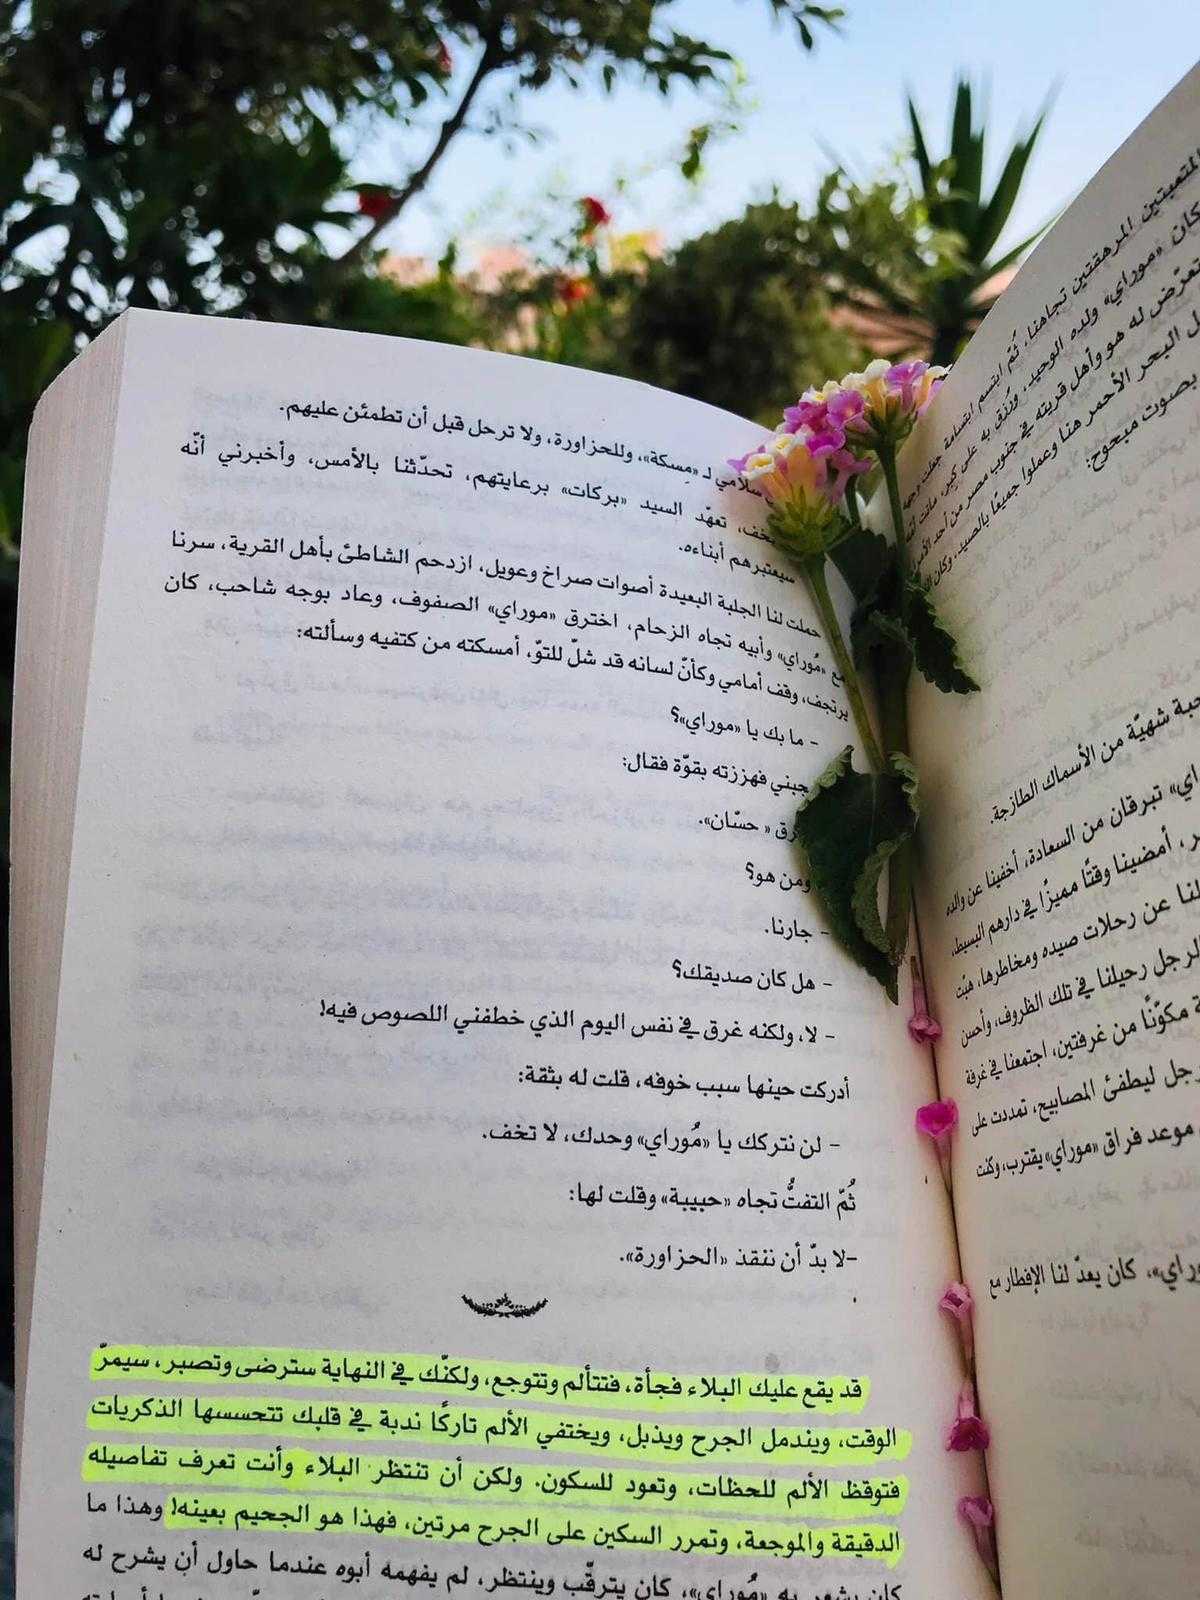 المتعبتين المرهقتين تجاهنا، ثُمّ ابتسم ابتسامة جعلت
كان «موراي» ولده الوحيد، ورُزق به على كبر، ماتت
تعرّض له هو وأهل قريته في جنوب مصر من أحد
البحر الأحمر هنا وعملوا جميعًا بالصيد، وكان
بصوت مبحوح:
شهيّة من الأسماك الطازجة.
تبرقان من السعادة، أخفينا عن والده
أمضينا وقتًا مميزًا في دارهم البسيط،
لنا عن رحلات صيده ومخاطرها، هبّت
الرجل رحيلنا في تلك الظروف، وأحسن
مكوّنًا من غرفتين، اجتمعنا في غرفة
ليطفئ المصابيح، تمددت على
موعد فراق «موراي» يقترب، وكنت
كان يعدّ لنا الإفطار مع
سلامي لـ «مِسكة»، وللحزاورة، ولا ترحل قبل أن تطمئن عليهم.
تخف، تعهّد السيد «بركات» برعايتهم، تحدّثنا بالأمس، وأخبرني أنّه
سيعتبرهم أبناءه.
حملت لنا الجلبة البعيدة أصوات صراخ وعويل، ازدحم الشاطئ بأهل القرية، سرنا
مع «مُوراي» وأبيه تجاه الزحام، اخترق «موراي» الصفوف، وعاد بوجه شاحب، كان
يرتجف، وقف أمامي وكأنّ لسانه قد شلّ للتوّ، أمسكته من كتفيه وسألته:
- ما بك يا «موراي»؟
فهززته بقوّة فقال:
«حسّان».
ومن هو؟
- جارنا.
- هل كان صديقك؟
- لا، ولكنه غرق في نفس اليوم الذي خطفني اللصوص فيه!
أدركت حينها سبب خوفه، قلت له بثقة:
- لن نتركك يا «مُوراي» وحدك، لا تخف.
ثُمّ التفتُّ تجاه «حبيبة» وقلت لها:
-لا بدّ أن ننقذ «الحزاورة».
قد يقع عليك البلاء فجأة، فتتألم وتتوجع، ولكنّك في النهاية سترضى وتصبر، سيمرّ
الوقت، ويندمل الجرح ويذبل، ويختفي الألم تاركًا ندبة في قلبك تتحسسها الذكريات
فتوقظ الألم للحظات، وتعود للسكون. ولكن أن تنتظر البلاء وأنت تعرف تفاصيله
الدقيقة والموجعة، وتمرر السكين على الجرح مرتين، فهذا هو الجحيم بعينه! وهذا ما
كان يشعر به «مُوراي»، كان يترقّب وينتظر، لم يفهمه أبوه عندما حاول أن يشرح له